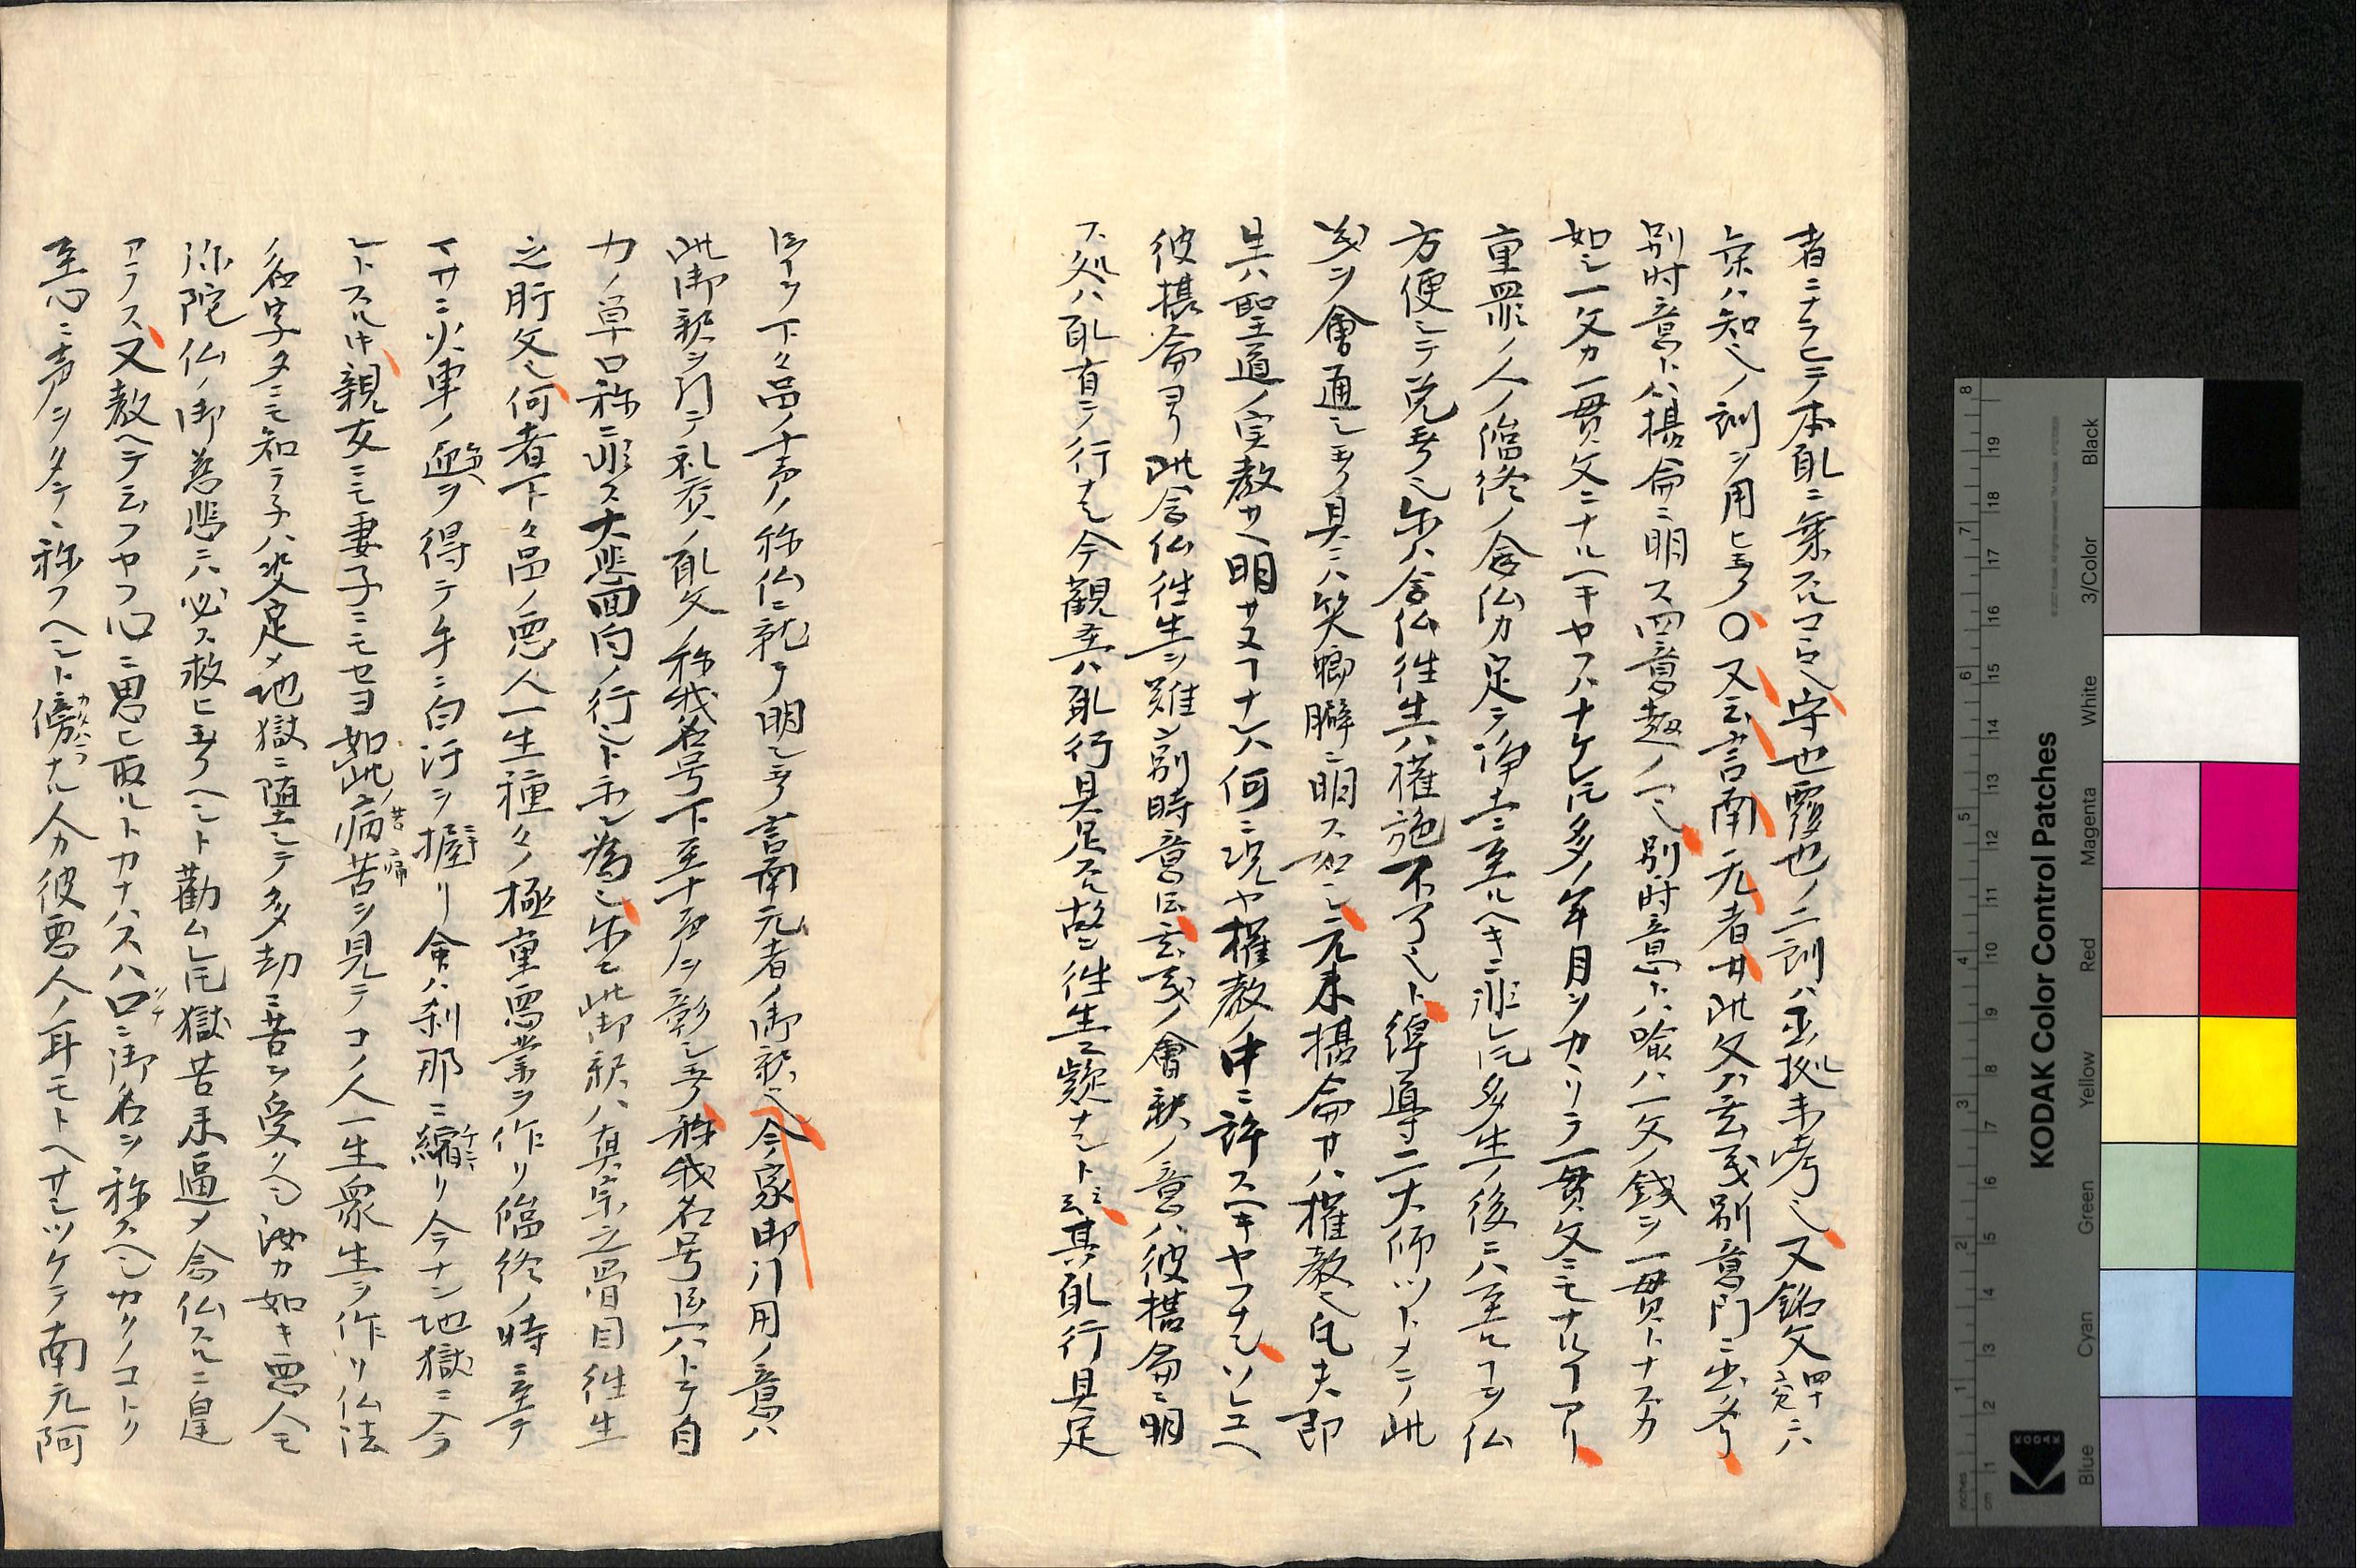 者ニナラヒテ本願ニ乗スルコロ也守也覆也ノ二訓ハ出拠未考也又銘文四十六
乗ハ知ヘノ訓ヲ用ヒ玉フ〇又云言南无者廿此文ハ玄義別意門ニ出タリ
別时意トハ摂论ニ明ス四意趣ノ一也別时意トハ喩ハ一文ノ錢ヲ一貫トナスカ
如シ一文カ一貫文ニナルヘキヤウハナケレ𪜈多ノ年月ヲカヽリテ一貫文ニモナルヿアリ
重罪ノ人ノ臨終ノ念仏カ足テ浄土ニ至ルヘキニ非レ𪜈多生ノ後ニハ至ルヿヲ仏
方便シテ説玉フ也尓ハ念仏往生ハ権施不了也ト綽導二大师ツトメテ此
義ヲ會通シ玉フ具ニハ笑螂臂ニ明ス如シ元来摂论サハ権教也凡夫即
生ハ聖道ノ実教サヘ明サヌヿナレハ何ニ况ヤ権教ノ中ニ許スヘキヤウナシソレユヘ
彼摂论ヨリ此念仏往生ヲ難シ別時意伝云義ノ會釈ノ意ハ彼摂论ニ明
ス処ハ願有テ行ナシ今観至ハ願行具足スル故ニ往生疑ナシト云云其願行具足
ヲ下々品ノ十声ノ称仏ニ就テ明シ玉フ言南无者ノ御釈也今家御引用ノ意ハ
此御釈ヲ引テ礼賛ノ願文ノ称我名号下至十声ヲ彰シ玉フ称我名号ハトテ自
力ノ草口称ニ非ス大悲回向ノ行シト示シ為シ尓モ此御釈ハ真宗之眉目往生
之肝文也何者下々品ノ悪人一生種々ノ極重悪業ヲ作リ臨終ノ時ニ至テ
マサニ火車ノ迎ヲ得テ手ニ白汗ヲ握リ命ハ刹那ニ縮リ今ナン地獄ニ入
レトスル井親友ニモ妻子ニモセヨ如此ノ病苦ヲ見テコノ人一生衆生ヲ作リ仏法
ノ名字タニモ知ラ子ハ決定〆地獄ニ堕シテ多劫ニ苦ヲ受ヘシ汝カ如キ悪人モ
弥陀仏ノ御慈悲ニハ必ス救ヒ玉フヘシト勸ムレ𪜈獄苦来逼〆念仏スルニ遑
アラス又教ヘテ云フヤウ心ニ思ヒ取ルトカナハスハ口ニ御名ヲ称スヘシカクノコトク
至心ニ声ヲタテ、称フヘシト傍ナル人カ彼悪人ノ耳モトヘサシツケテ南无阿
KODAK Color Control Patches
Blue Cyan Green Yellow Red Magenta White 3/Color Black